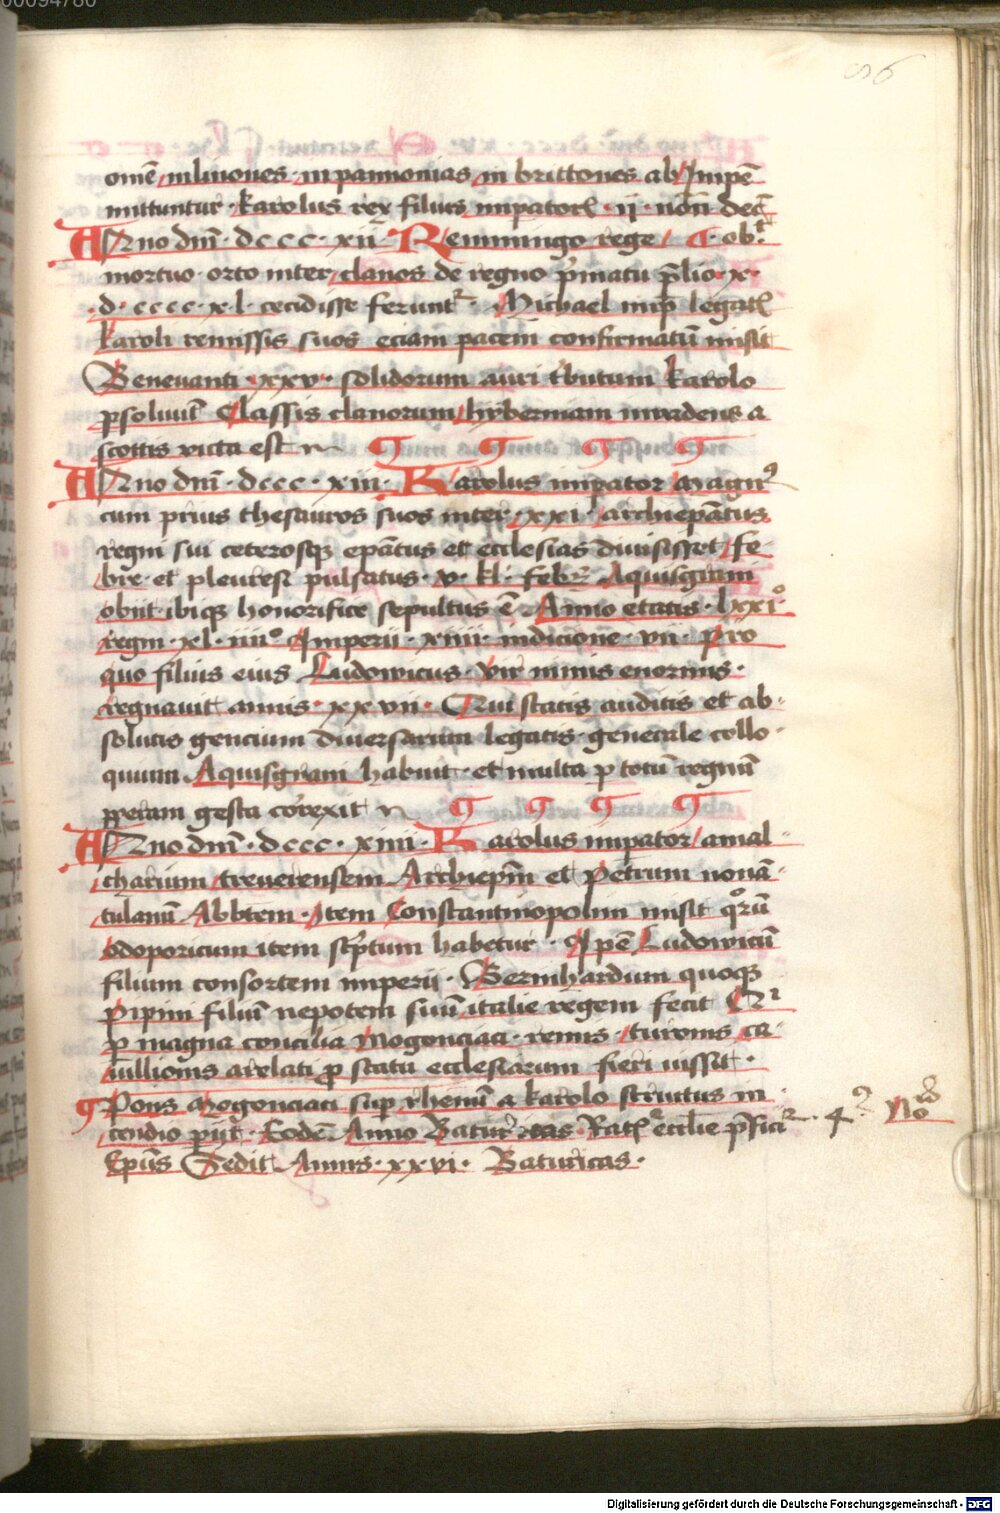 00094780
96
omē in linones in pannonias in brittones ab Impē
mittuntur karolus rex filius impatorꝭ · ij · non̄ decꝭ
Anno dn̄i · dccc · xii · Remmingo rege · ob
mortuo · orto inter clanos de regno p̄matu p̄lio · x ·
d · cccc · x · l · cecidisse ferunt᷑ Michael imp̄ legatꝭ
karoli remissis suos eciam pacem confirmatū misit
Beneuanti · xxv · solidorum auri t͛butum karolo
ꝑsoluūt Classis clanorum hyberniam inuadens a
scottis victa est
Anno dn̄i · dccc · xiii · Karolus impator magn᷒
cum prius thesauros suos inter · xxi · archiepātus
regni sui ceterosqꝫ epātus et ecclesias diuisisset fe
bre et pleuresi pulsatus · v · kl · feb᷑ Aquisgrani
obiit ibiqꝫ honorifice sepultus ē Anno etatis · lxxiº
regni · xl · iiiiº Imperii · xiiii · indicione · vii · Pro
quo filius eius Ludowicus · vir nimis enormis ·
regnauit annis · xxvii · Qui statis auditis et ab
solutis gencium diuersarum legatis generale collo
quium Aquisgrani habuit · et multa ꝑ totū regnū
ꝑperam gesta correxit
Anno dn̄i · dccc · xiiii · Karolus impator amal
charium treuerensem Archiepm̄ et Petrum nonā
tulanū Abbtem · Item Constantinopolim misit qͦrū
odoporicum item scp̄tum habetur · Ipē Ludowicū
filium consortem imperii · Bernhardum quoqꝫ
Pipini filiū nepotem suū italie regem fecit
ꝑ magna concilia Mogonciaci · remis · turonis ca
uillionis arelati ꝓ statu ecclesiarum fieri iussit ·
Pons Mogonciaci sup rhenū a karolo structus in
cendio ꝑiit · Eodē Anno Batur᷑ Ratꝭ eccl̄ie
Ep̄us Sedit Annis · xxvi · Baturicus ·
Digitalisierung gefördert durch die Deutsche Forschungsgemeinschaft - DFG